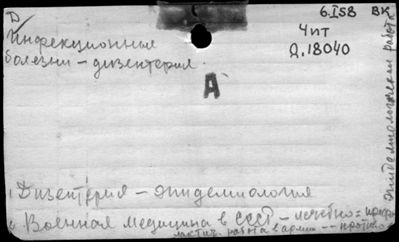 6.I58 ВК
Инфекционные
болезни – дизентерия.
Чит
Д.18040
А
Дизентерия – эпидемиология
Военная медицина в СССР – лечебно =
работа в армии --
Эпидемиологическая работа